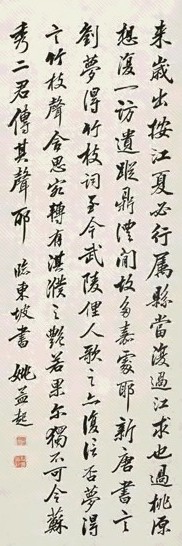 来歲出按江夏必行屬縣當復過江求也過桃源
想復一訪遺蹤鼎澧間故多嘉處耶新唐書言
劉夢得竹枝詞至今武陵俚人歌之亦復信否夢得
言竹枝聲含思宛轉有淇濮之艷若果尔獨不可令蘇
秀二君傳其聲耶 臨東坡書 姚孟起